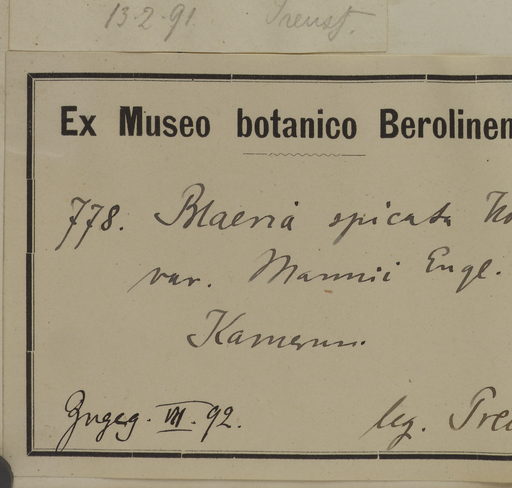 13.2.91 Preuss.
Ex Museo botanico Berolinen
778. Blaeria spicata Ho
var. Mannii Engl.
Kamerun.
Zugeg. VII. 92. leg. Preu